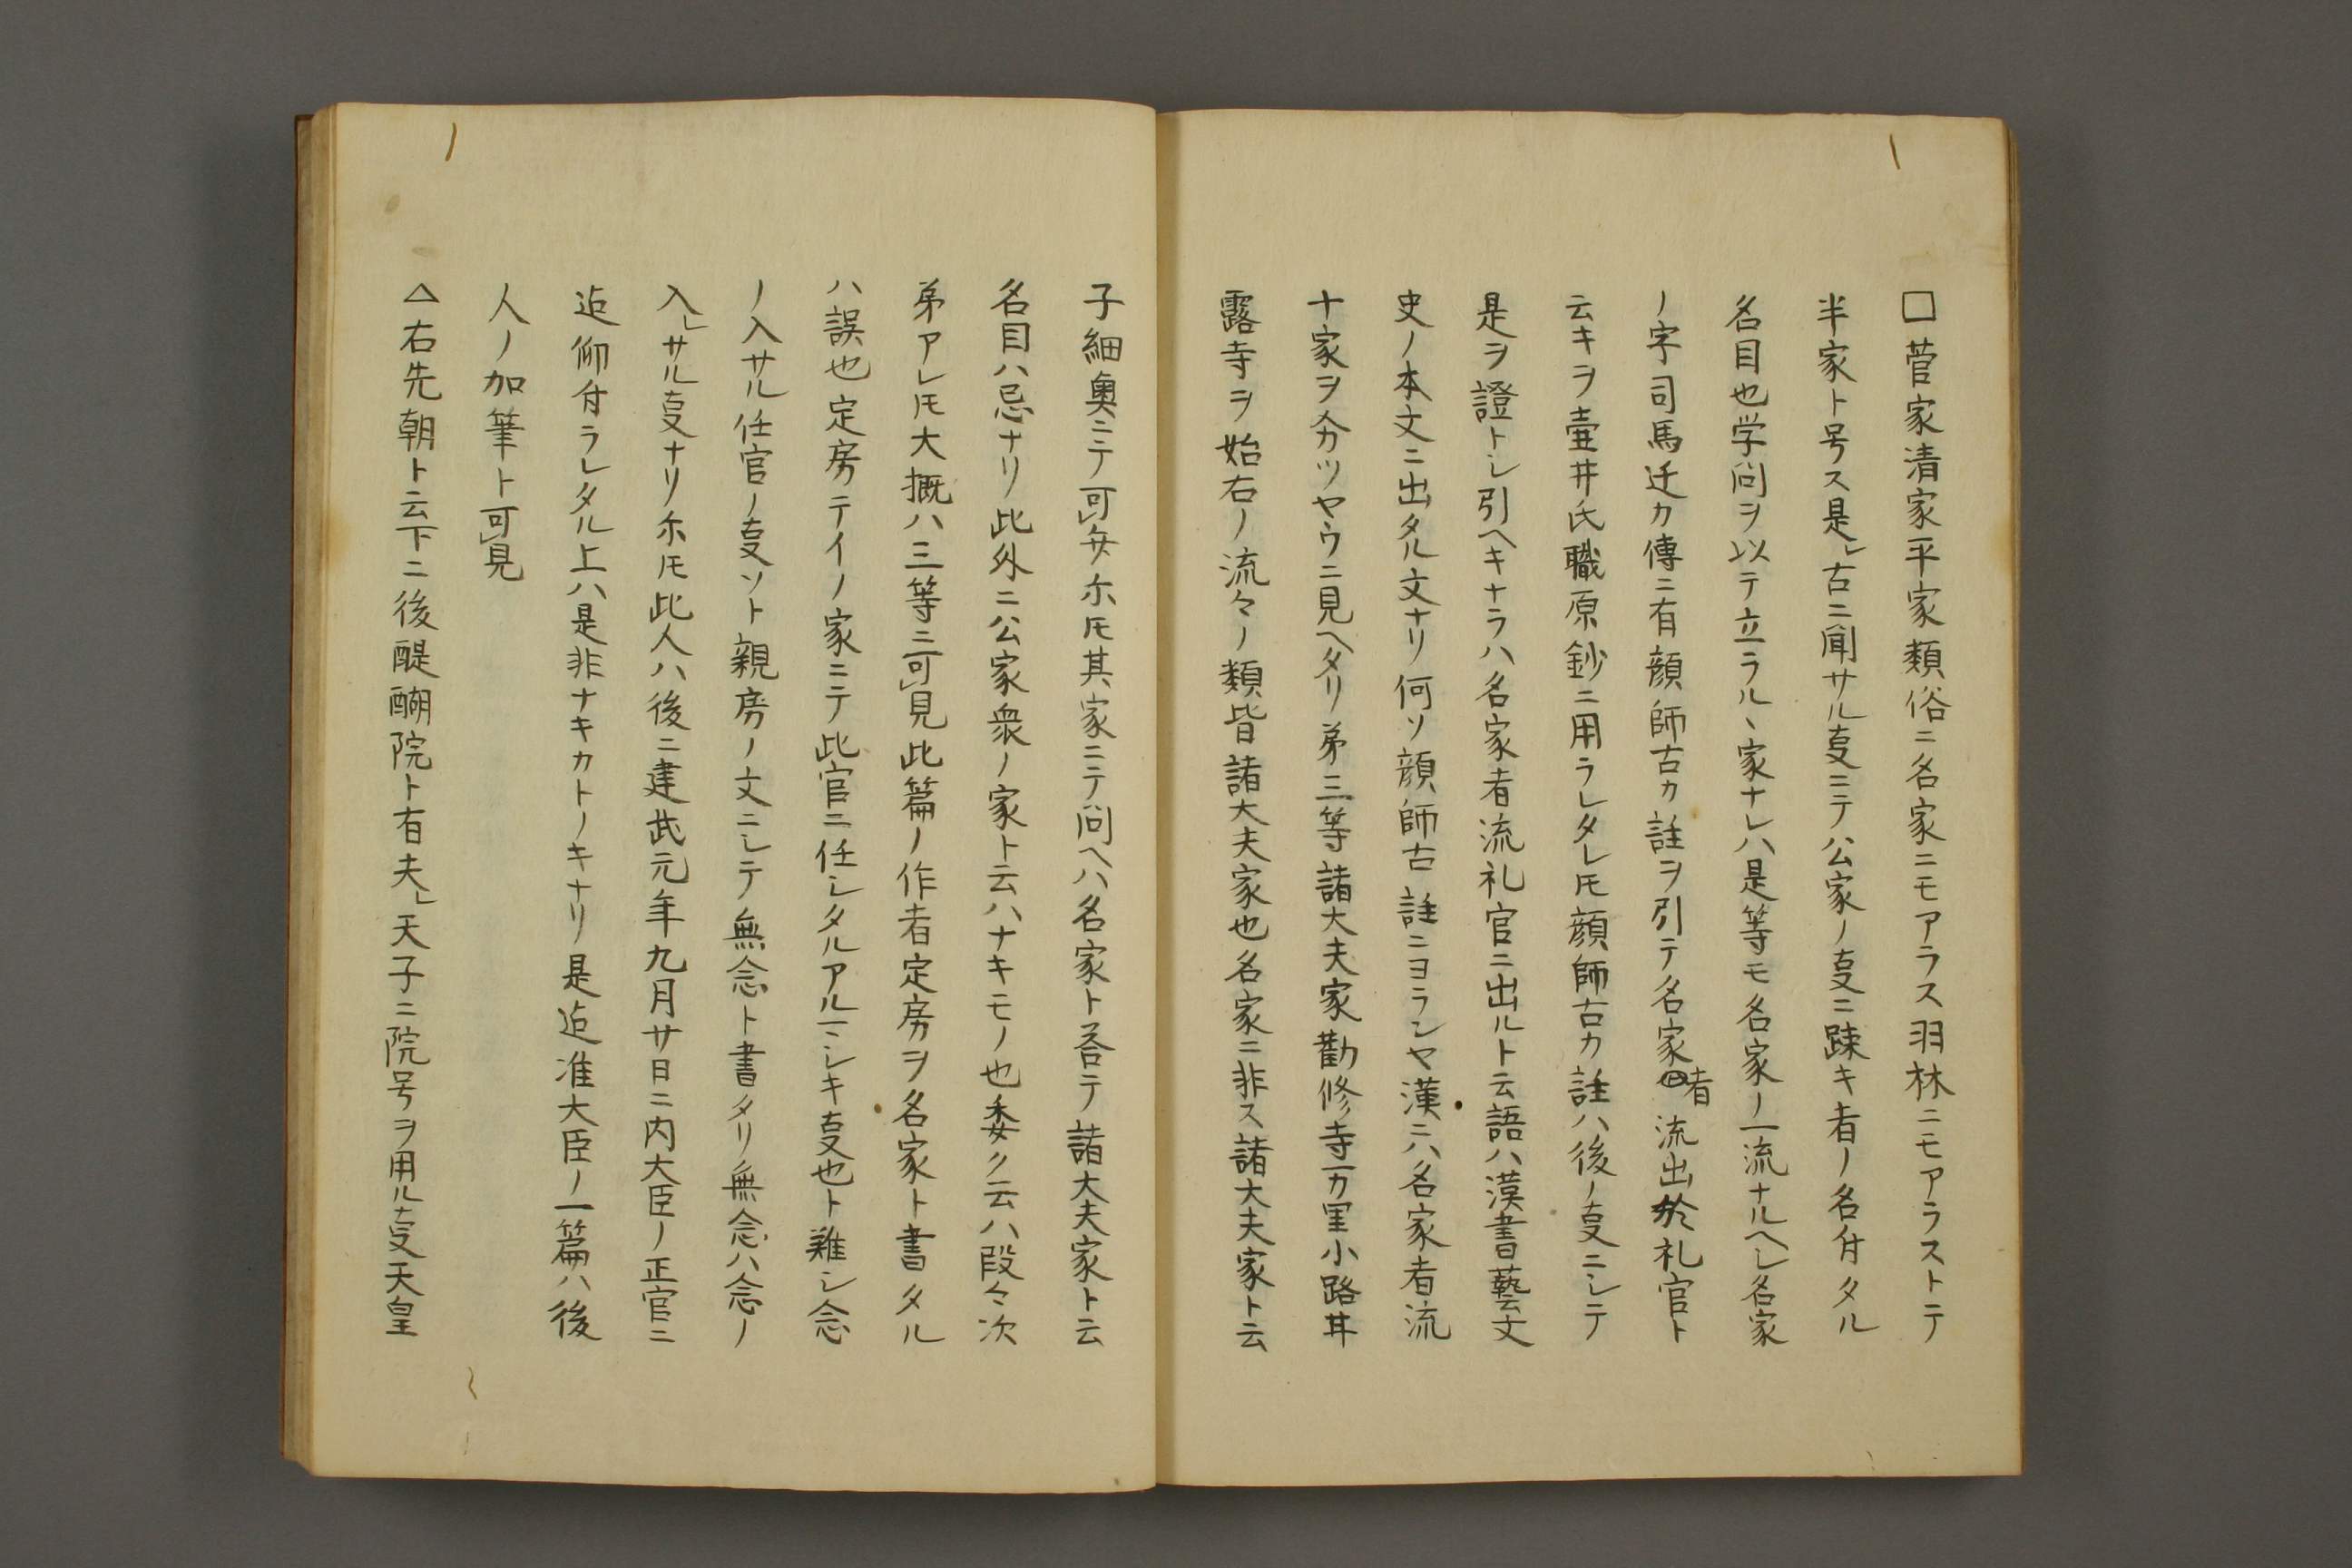 □菅家清家平家類俗ニ名家ニモアラス羽林ニモアラストテ
半家ト号ス是レ古ニ聞サル㕝ニテ公家ノ㕝ニ踈キ者ノ名付タル
名目也学問ヲ以テ立ラルヽ家ナレハ是等モ名家ノ一流ナルヘシ名家
ノ字司馬迁カ傳ニ有顔師古カ註ヲ引テ名家者流出於礼官ト
云キヲ壷井氏職原鈔ニ用ラレタレ𪜈顔師古カ註ハ後ノ㕝ニシテ
是ヲ證トシ引ヘキナラハ名家者流礼官ニ出ルト云語ハ漢書藝文
史ノ本文ニ出タル文ナリ何ソ顔師古註ニヨランヤ漢ニハ名家者流
十家ヲ分ツヤウニ見ヘタリ弟三等諸大夫家勸修寺万里小路甘
露寺ヲ始右ノ流々ノ類皆諸大夫家也名家ニ非ス諸大夫家ト云
子細奥ニテ可弁尓𪜈其家ニテ問ヘハ名家ト荅テ諸大夫家ト云
名目ハ忌ナリ此外ニ公家衆ノ家ト云ハナキモノ也委ク云ハ段々次
弟アレ𪜈大概ハ三等ニ可見此篇ノ作者定房ヲ名家ト書タル
ハ誤也定房テイノ家ニテ此官ニ任シタルアルマシキ㕝也ト難シ念
ノ入サル任官ノ㕝ソト親房ノ文ニシテ無念ト書タリ無念ハ念ノ
入レサル㕝ナリ尓𪜈此人ハ後ニ建武元年九月廿日ニ内大臣ノ正官ニ
迠仰付ラレタル上ハ是非ナキカトノキナリ是迠准大臣ノ一篇ハ後
人ノ加筆ト可見
△右先朝ト云下ニ後醍醐院ト有夫レ天子ニ院号ヲ用ル㕝天皇